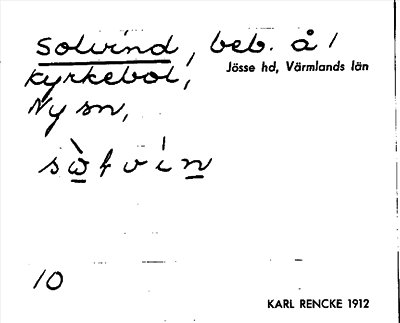 Solvind, beb. å
Jösse hd, Värmlands län
Kyrkebol,
Ny sn,
10
KARL RENCKE 1912